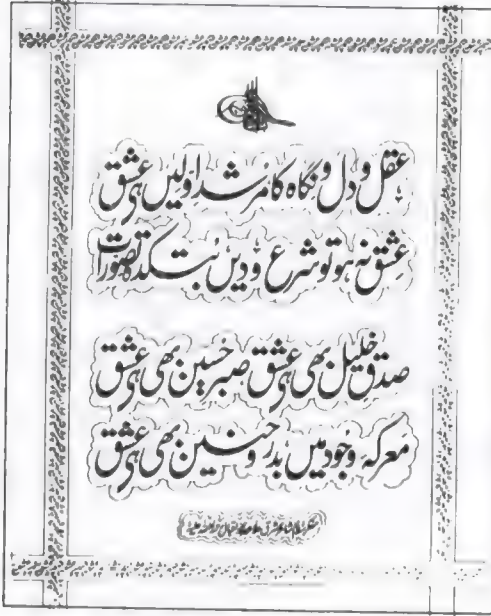 عقل و دل و نگاہ کا مرشد اولیں ہے عشق
عشق نہ ہو تو شرع و دیں بت کدہ تصورات
صدق خلیل بھی ہے عشق صبر حسین بھی ہے عشق
معرکہ وجود میں بدر و حنین بھی ہے عشق